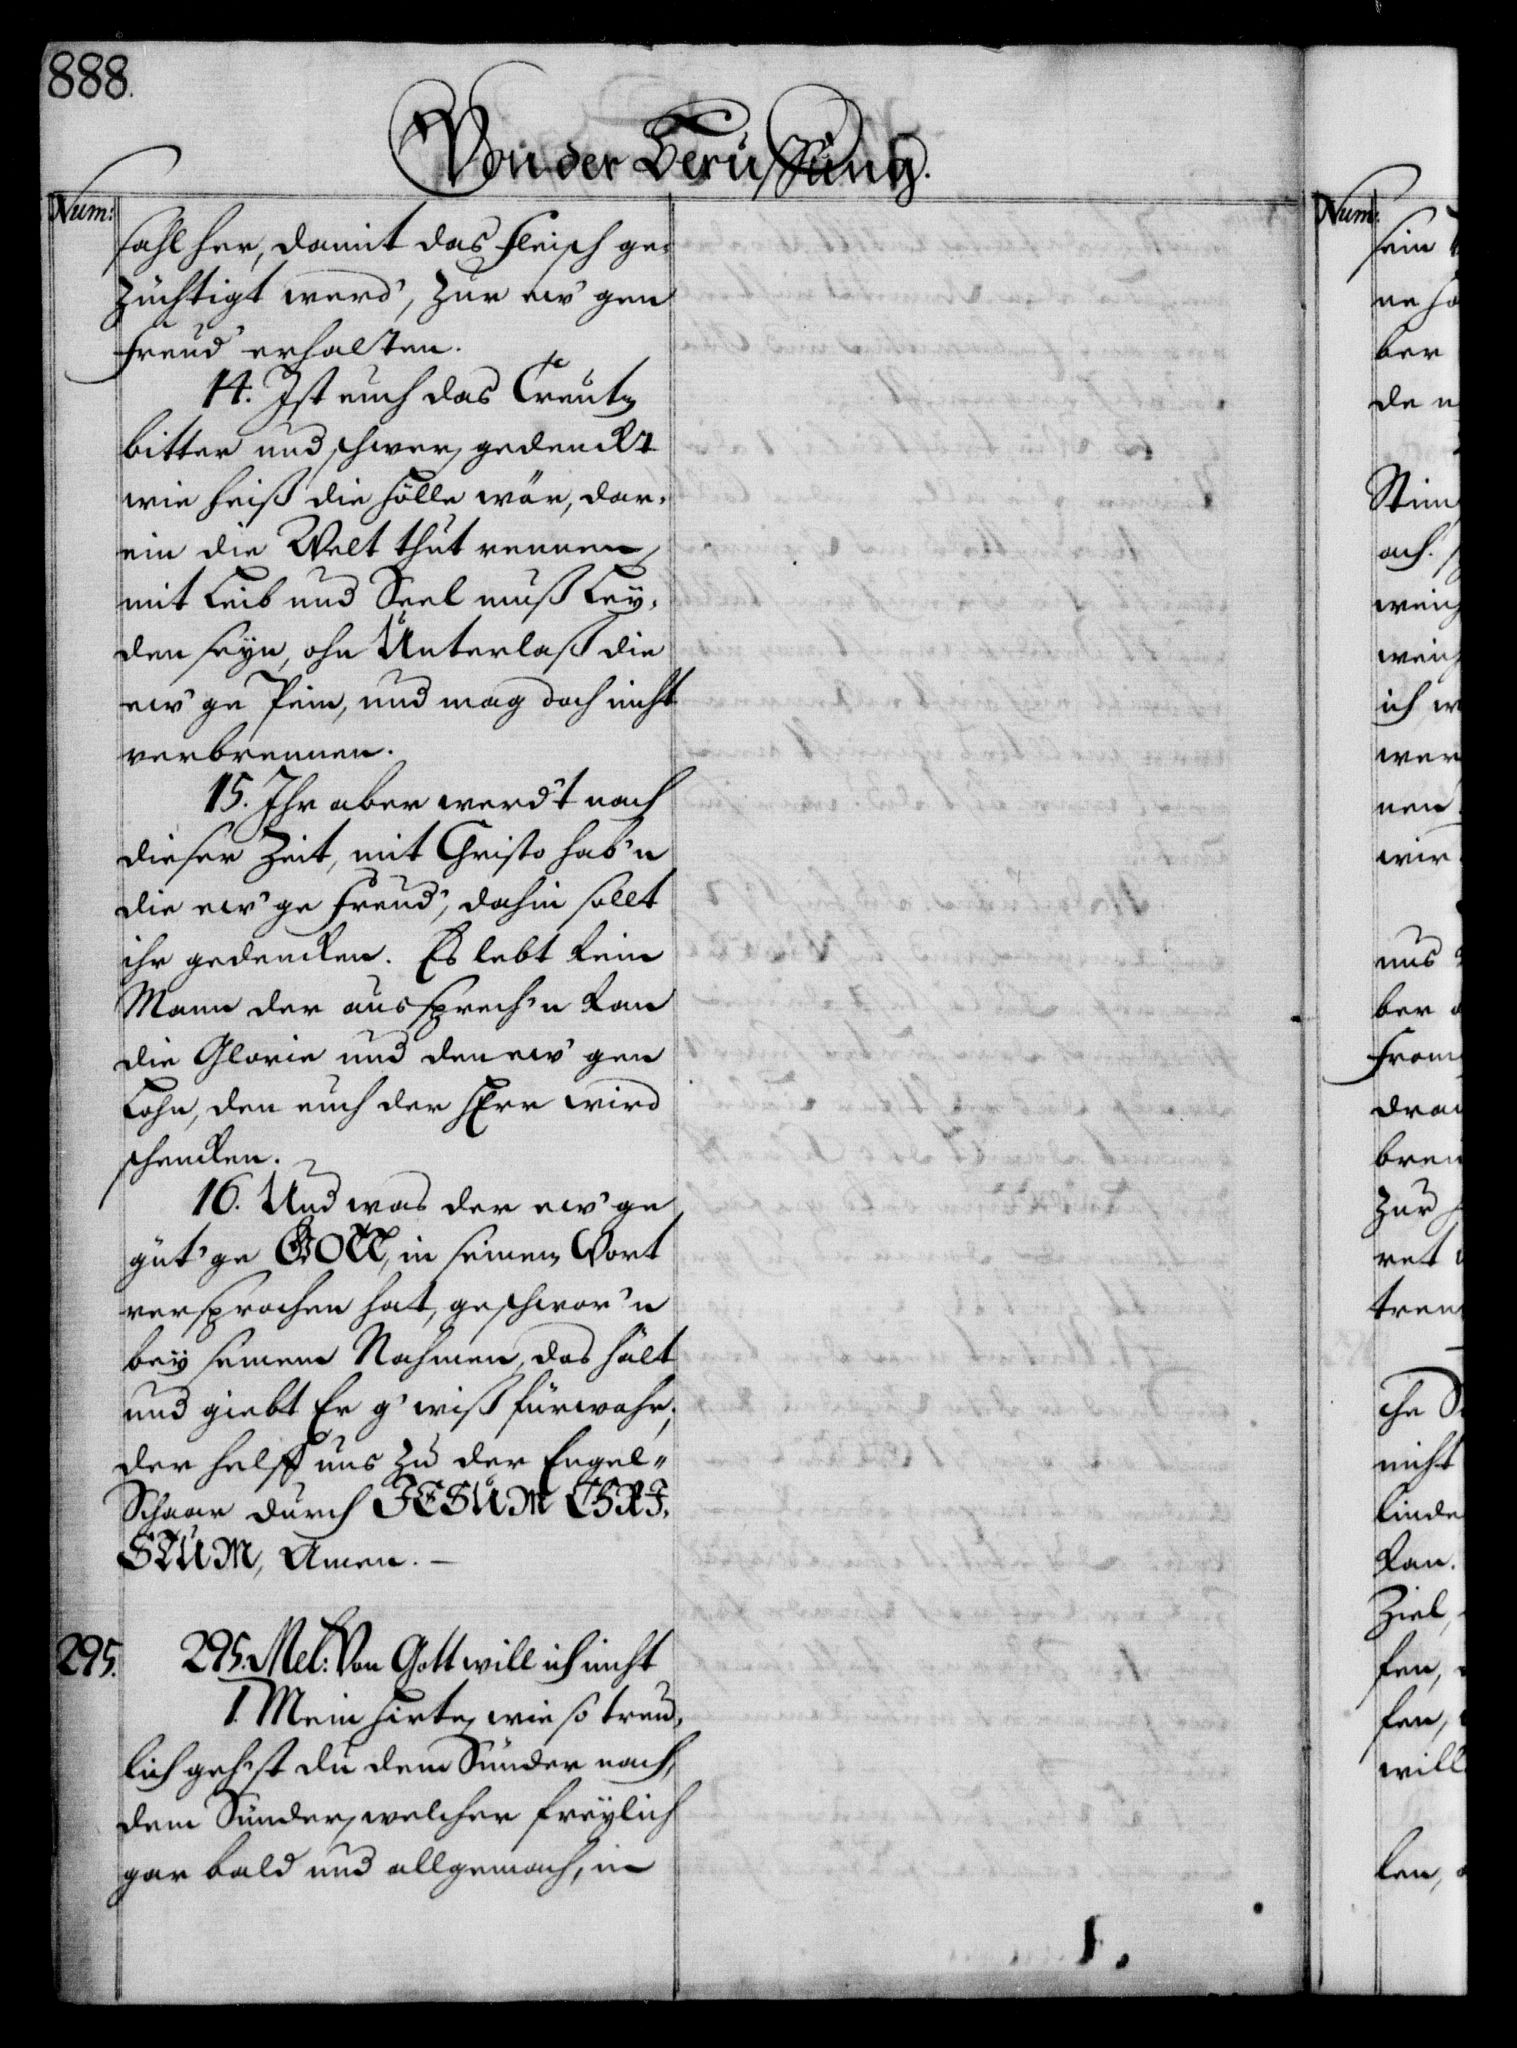 888.
Von der Beruffung.
Num:
fahl her, damit das Fleisch ge-
züchtigt werd', zur ew'gen
Freud' erhalten.
14. Ist euch das Creutz
bitter und schwer, gedenckt
wie heiß die Hölle wär, dar-
ein die Welt thut rennen,
mit Leib und Seel muß Ley-
den seyn, ohn Unterlaß die
ew'ge Pein, und mag doch nicht
verbrennen.
15. Ihr aber werd't nach
dieser Zeit, mit Christo hab'n
die ew'ge Freud', dahin sollt
ihr gedencken. Es lebt kein
Mann der aussprech'n kan
die Glorie und den ew'gen
Lohn, den euch der HErr wird
schencken.
16. Und was der ew'ge
güt'ge GOTT, in seinem Wort
versprochen hat, geschwor'n
bey seinem Nahmen, das hält
und giebt Er g'wiß fürwahr,
der helff uns zu der Engel-
Schaar durch JESUM CHRJ-
STUM, Amen. —
295. 295. Mel: Von Gott will ich nicht
1. Mein Hirte, wie so treu-
lich geh'st du dem Sünder nach,
dem Sünder, welcher freylich
gar bald und allgemach, in
Num:
sein
ne
ber
de
Stim
ach.
weich
weich
ich
wer
nen
wir
uns
ber
From
drau
zur
ret
tren
che
nicht
linde
kan.
Ziel,
fen,
fen,
will
len,